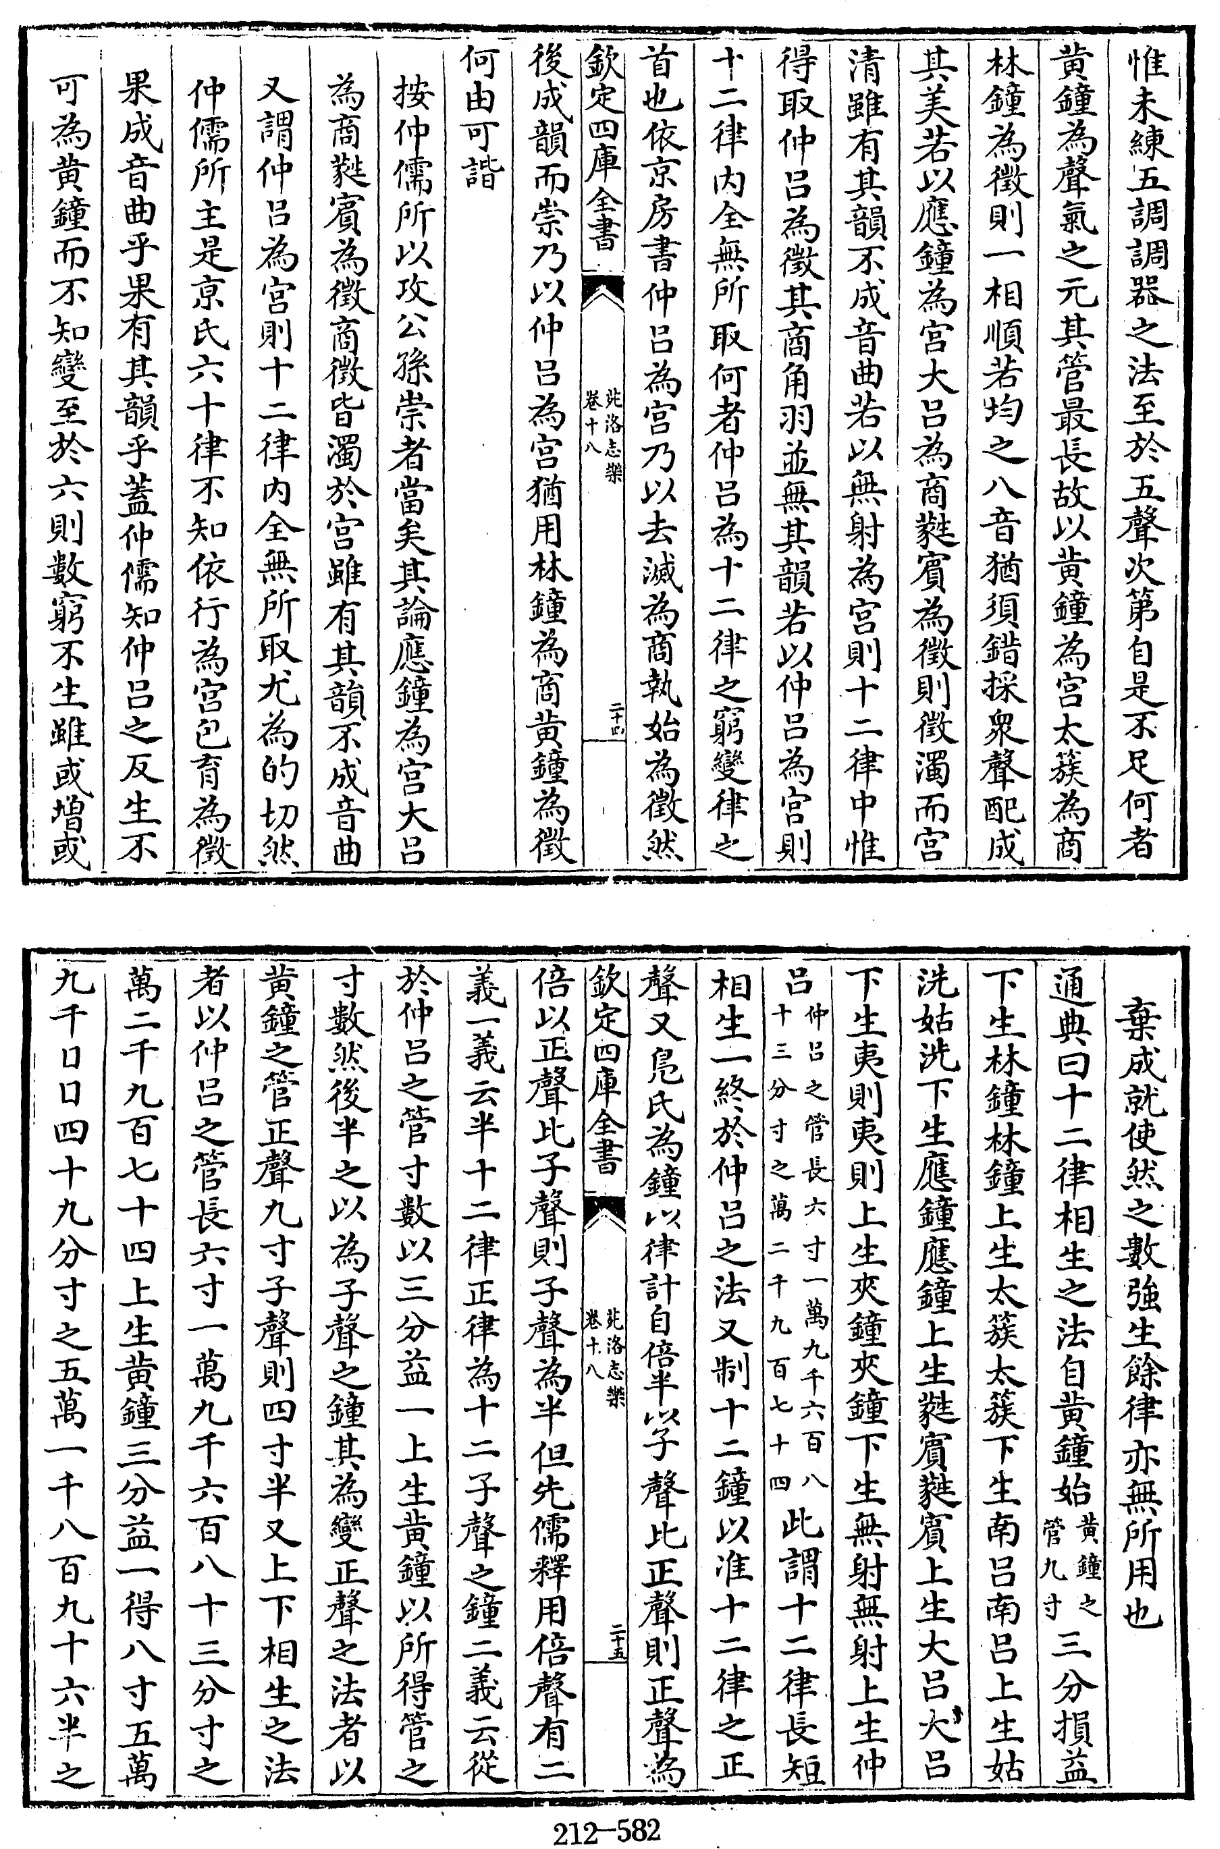 惟未練五調調器之法至於五聲次第自是不足何者
黃鐘為聲氣之元其管最長故以黃鐘為宮太簇為商
林鐘為徵則一相順若均之八音猶須錯採衆聲配成
其美若以應鐘為宮大呂為商蕤賓為徵則徵濁而宮
清雖有其韻不成音曲若以無射為宮則十二律中惟
得取仲呂為徵其商角羽並無其韻若以仲呂為宮則
十二律内全無所取何者仲呂為十二律之窮變律之
首也依京房書仲呂為宮乃以去滅為商執始為徵然
欽定四庫全書
苑洛志樂
卷十八
二十四
後成韻而崇乃以仲呂為宮猶用林鐘為商黃鐘為徵
何由可諧
按仲儒所以攻公孫崇者當矣其論應鐘為宮大呂
為商蕤賓為徵商徵皆濁於宮雖有其韻不成音曲
又謂仲呂為宮則十二律内全無所取尤為的切然
仲儒所主是京氏六十律不知依行為宮包育為徵
果成音曲乎果有其韻乎蓋仲儒知仲呂之反生不
可為黃鐘而不知變至於六則數窮不生雖或增或
棄成就使然之數強生餘律亦無所用也
通典曰十二律相生之法自黃鐘始黃鐘之管九寸三分損益
下生林鐘林鐘上生太簇太簇下生南呂南呂上生姑
洗姑洗下生應鐘應鐘上生蕤賓蕤賓上生大呂大呂
下生夷則夷則上生夾鐘夾鐘下生無射無射上生仲
呂仲呂之管長六寸一萬九千六百八十三分寸之萬二千九百七十四此謂十二律長短
相生一終於仲呂之法又制十二鐘以准十二律之正
聲又鳧氏為鐘以律計自倍半以子聲比正聲則正聲為
欽定四庫全書
苑洛志樂
卷十八
二十五
倍以正聲比子聲則子聲為半但先儒釋用倍聲有二
義一義云半十二律正律為十二子聲之鐘二義云從
於仲呂之管寸數以三分益一上生黃鐘以所得管之
寸數然後半之以為子聲之鐘其為變正聲之法者以
黃鐘之管正聲九寸子聲則四寸半又上下相生之法
者以仲呂之管長六寸一萬九千六百八十三分寸之
萬二千九百七十四上生黃鐘三分益一得八寸五萬
九千口口四十九分寸之五萬一千八百九十六半之
212-582